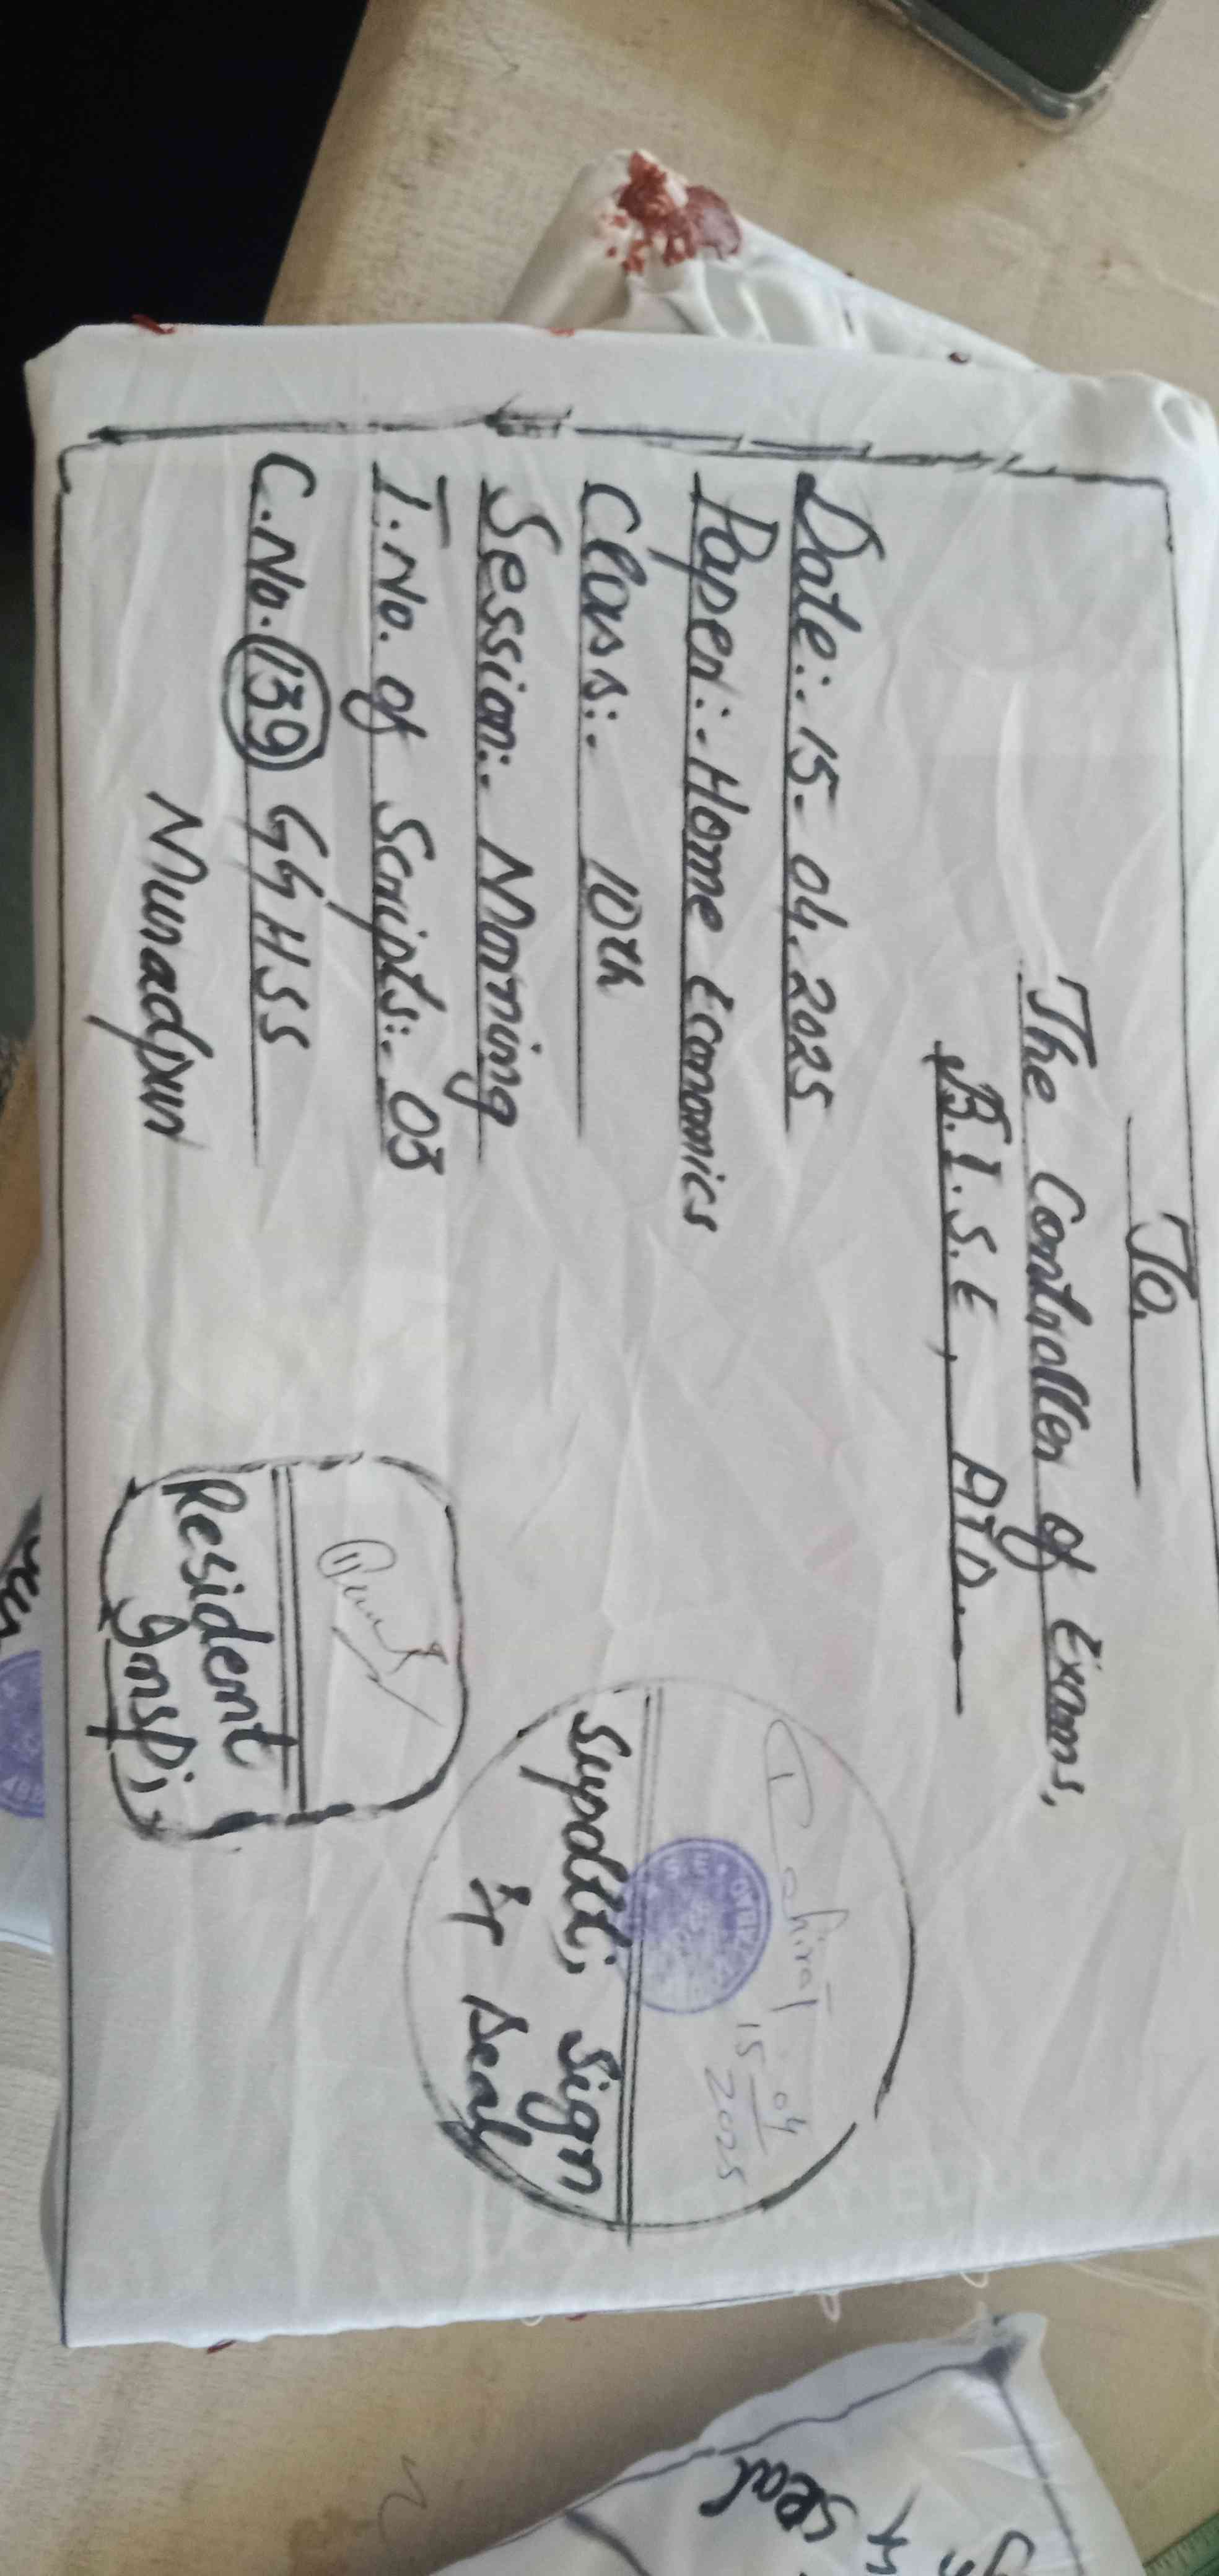 To.
The Controller of Exams,
B.I.S.E, ATD.
Date:. 15-04-2025
Paper:. Home Economics
Class:. 10th
Session:. Morning
T.No. of Scripts:. 03
C.No. 139 GGHSS
Muradpur
15/04/2025
Supdtt; Sign
& Seal
Resident
Insp;
Seal